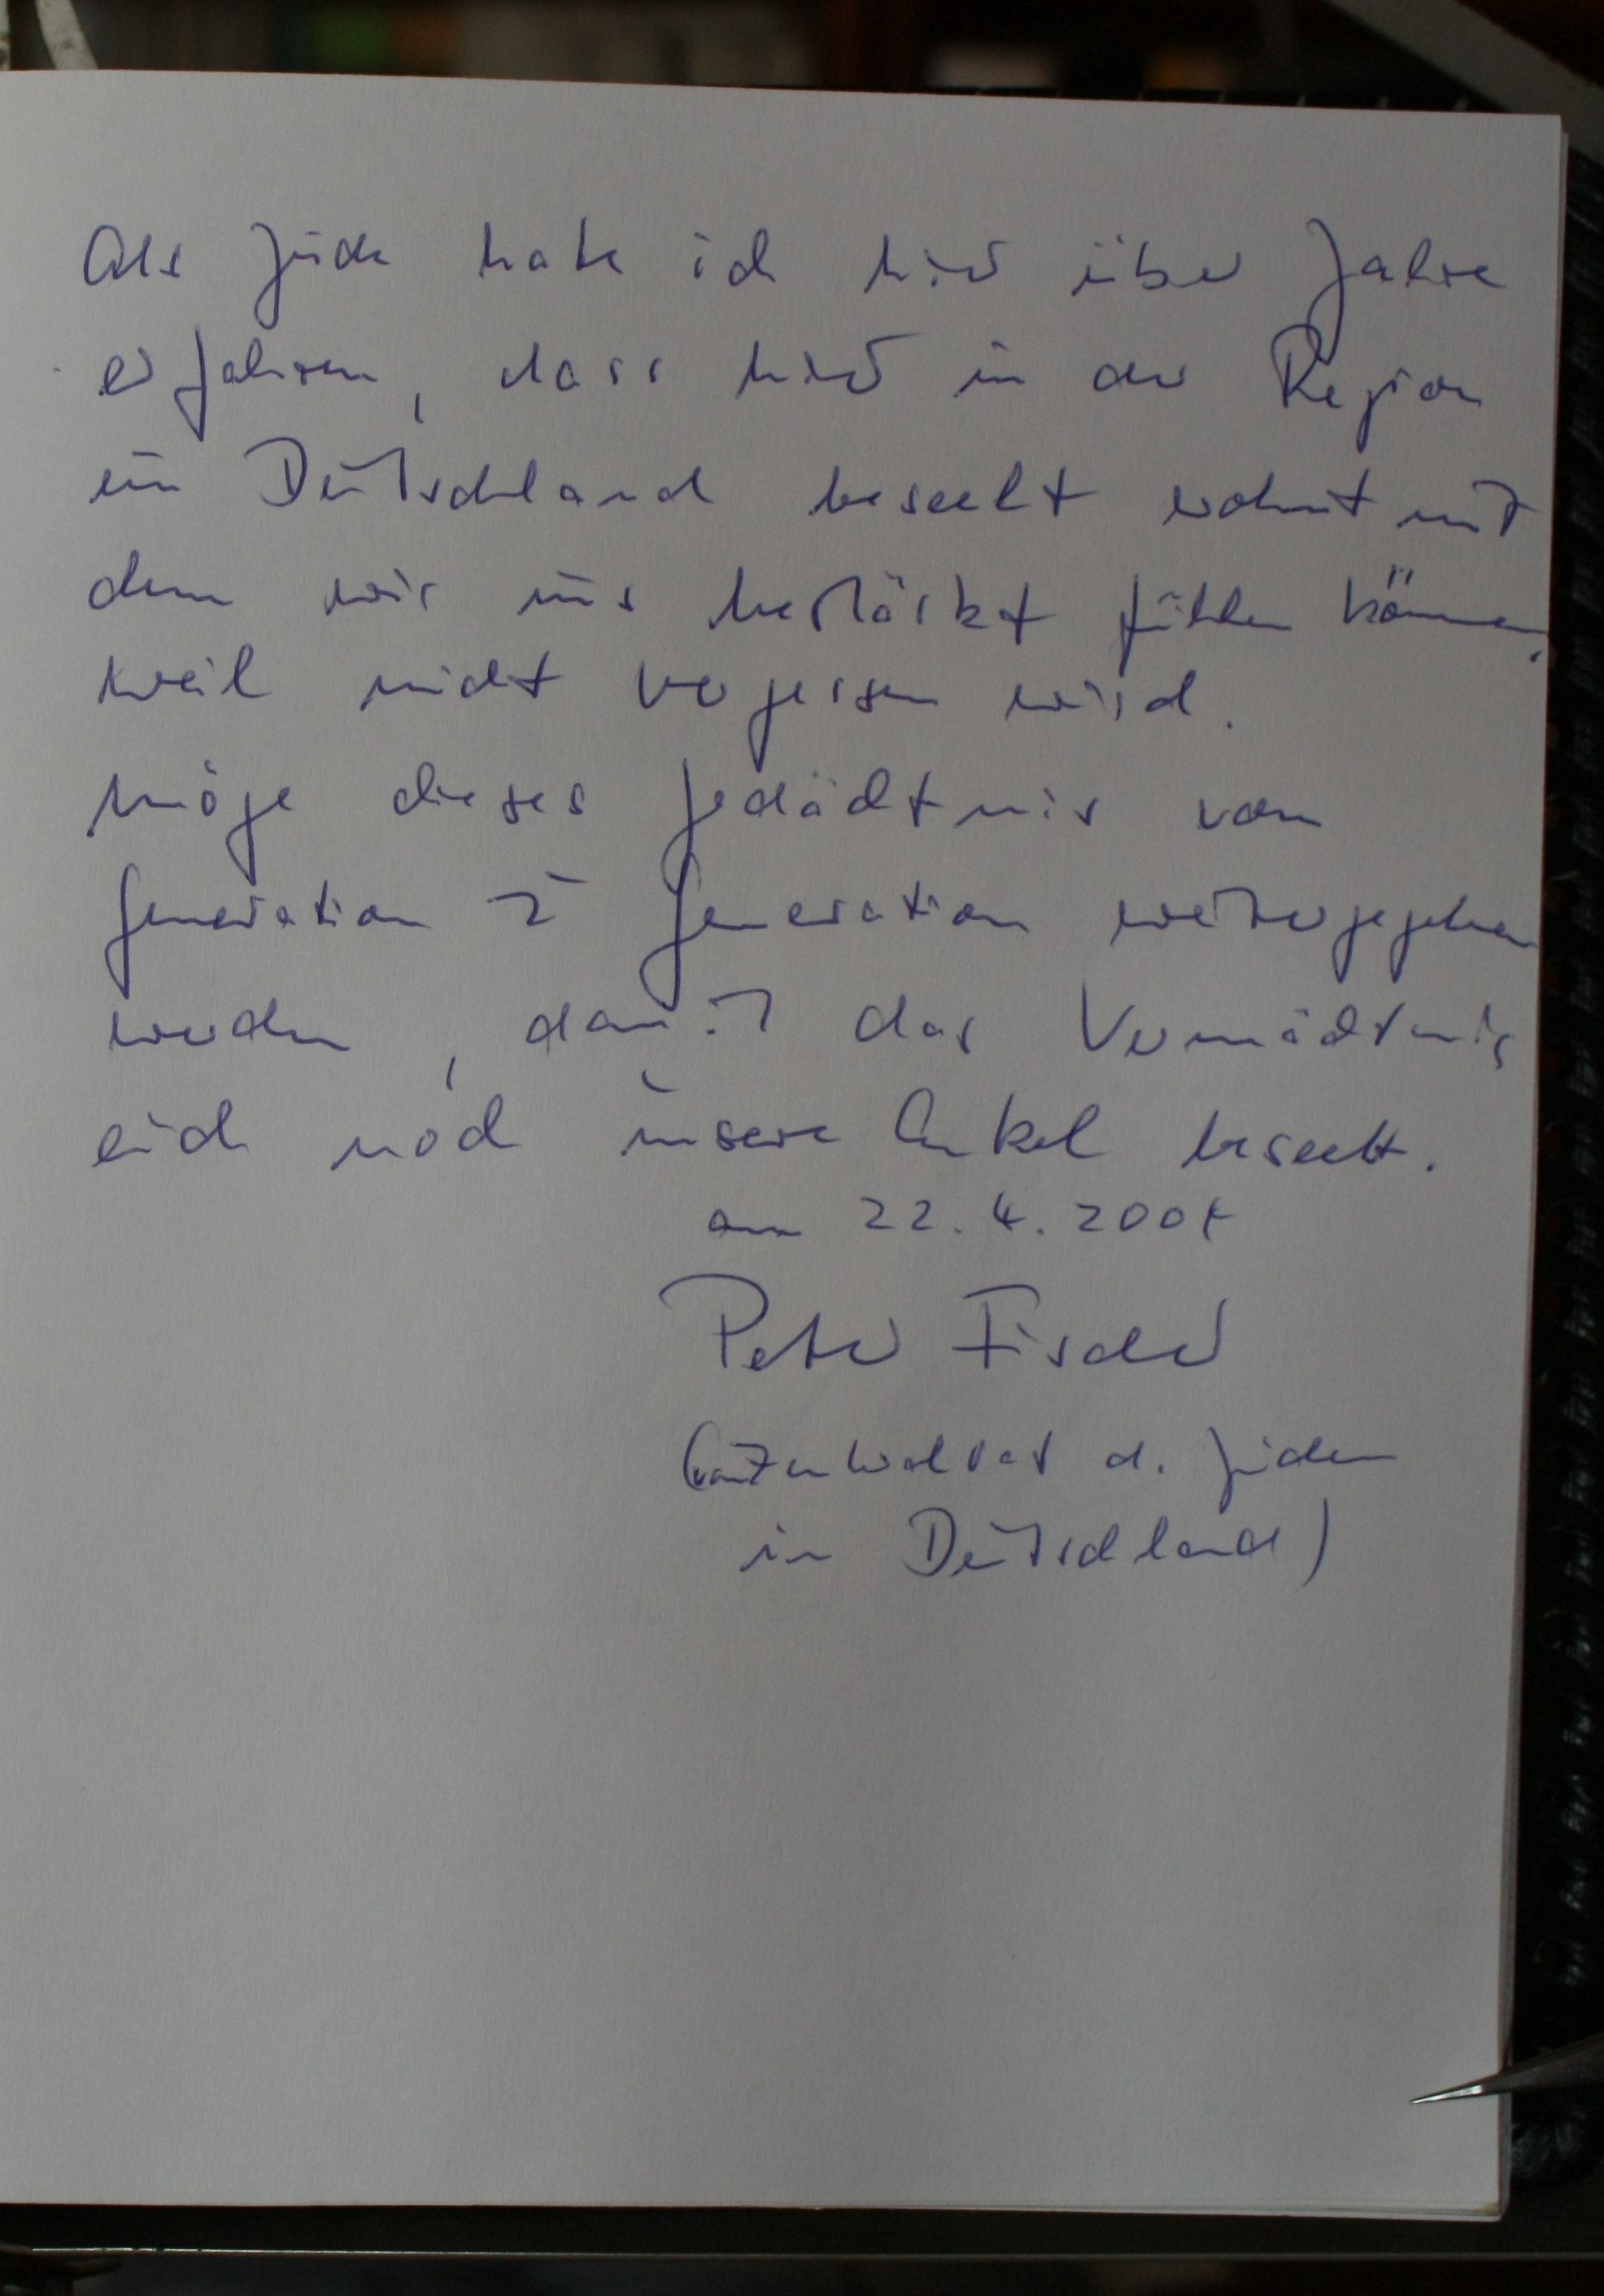 Als Jude habe ich hier über Jahre
erfahren, dass hier in der Region
ein Deutschland beseelt wohnt mit
dem wir uns bestärkt fühlen können,
weil nicht vergessen wird.
Möge dieses Gedächtnis von
Generation zu Generation weitergegeben
werden, damit das Vermächtnis
auch noch unsere Enkel beseelt.
am 22.4.200
Peter Fischer
(Zentralrat d. Juden
in Deutschland)